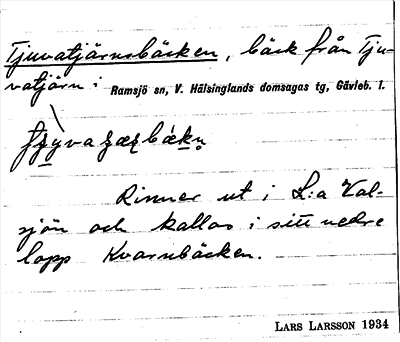 Tjuvatjärnsbäcken, bäck från Tju-
vatjärn i Ramsjö sn, V. Hälsinglands domsagas tg, Gävleb. l.
Rinner ut i L:a Val-
sjön och kallas i sitt nedre
lopp Kvarnbäcken.
LARS LARSSON 1934